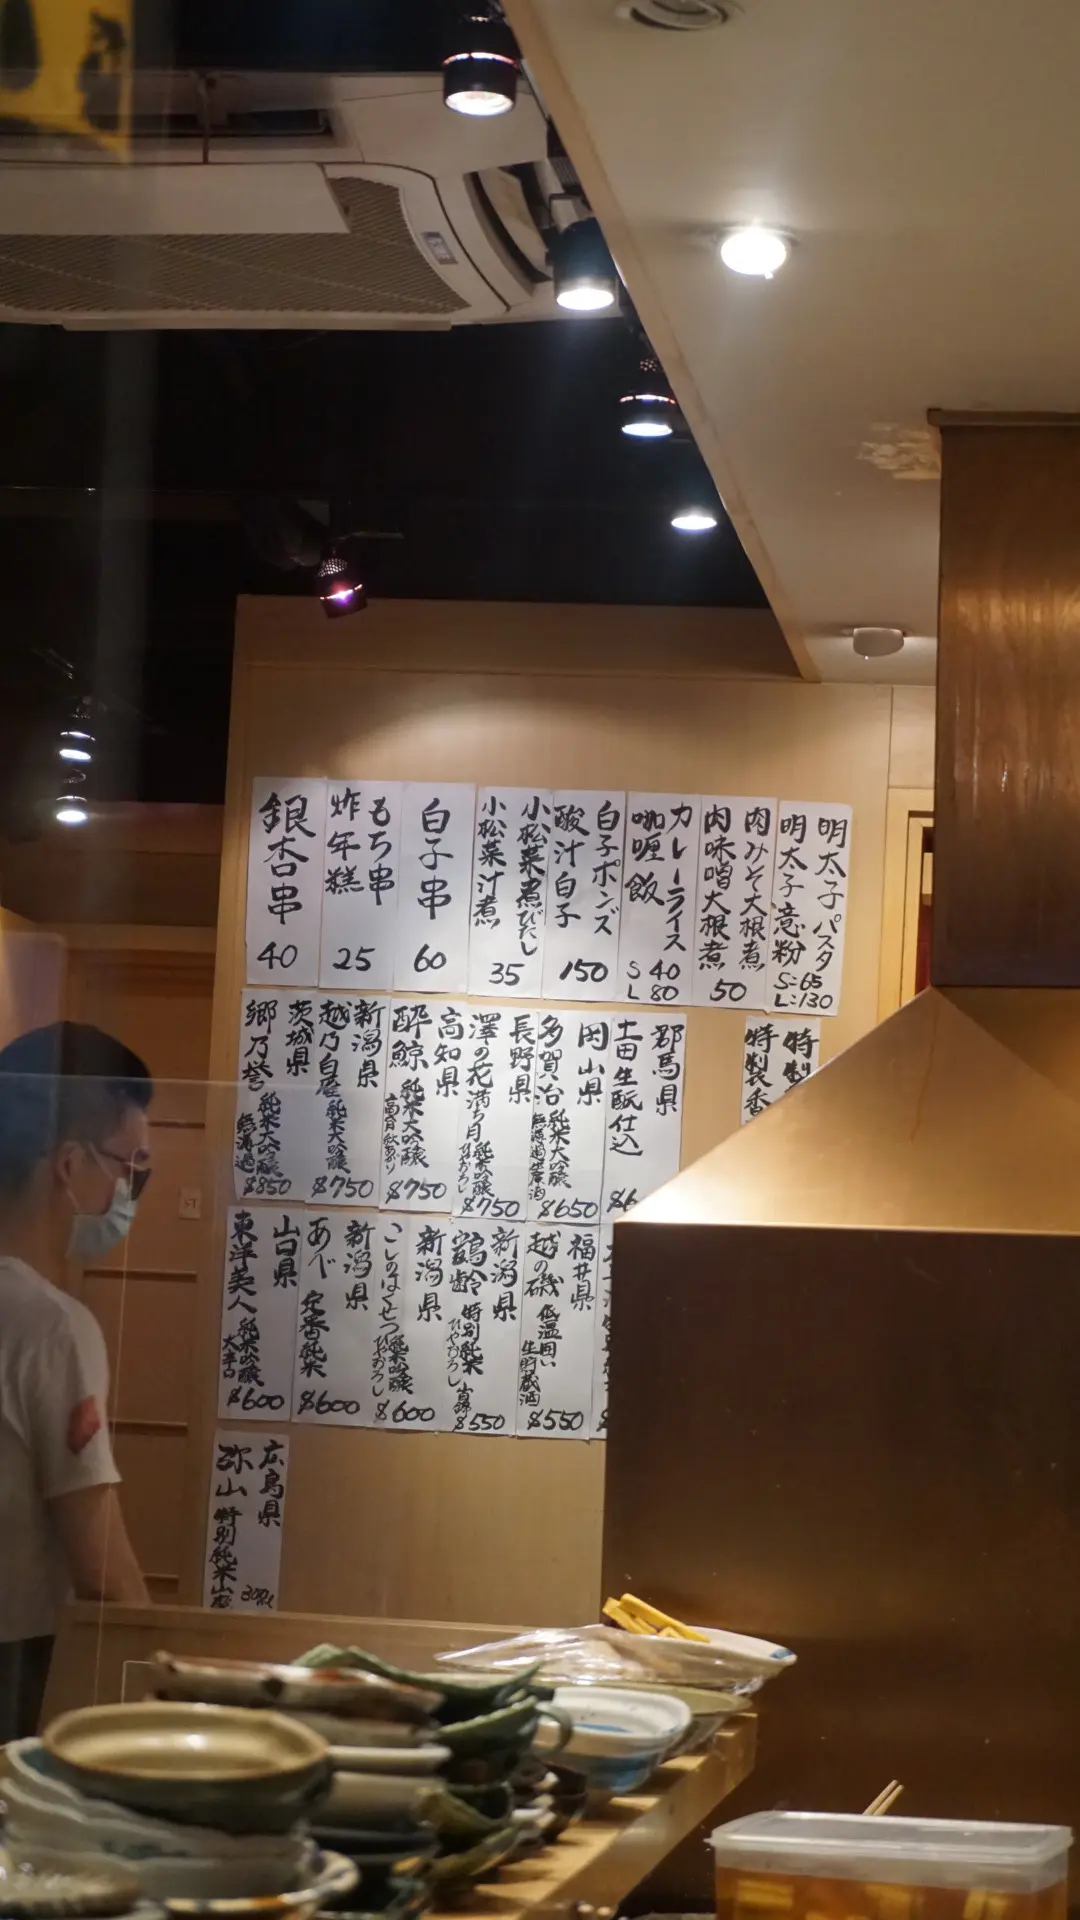 明太子パスタ
明太子意粉
S:65
L:130
肉みそ大根煮
肉味噌大根煮
50
カレーライス
咖喱飯
S 40
L 80
白子ポンズ
酸汁白子
150
小松菜煮びたし
小松菜汁煮
35
白子串
60
もち串
炸年糕
25
銀杏串
40
特製
特製香
郡馬県
土田生酛仕込
$6
岡山県
多賀治
純米大吟醸
$650
長野県
澤の花満ち月
純米吟醸
ひやおろし
$750
高知県
酔鯨
純米大吟醸
$750
新潟県
越乃白雁
純米大吟醸
$750
茨城県
郷乃誉
純米大吟醸
無濾過
$850
福井県
越の磯
低温囲い
生貯蔵酒
$550
新潟県
鶴齢
特別純米
ひやおろし
$550
新潟県
こしのはくせつ
純米吟醸
ひやおろし
$600
新潟県
あべ
定番純米
$600
山口県
東洋美人
純米吟醸
大辛口
$600
広島県
弥山
特別純米山